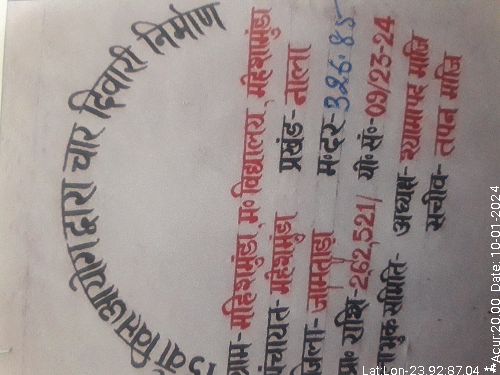 15वां वित्त आयोग द्वारा चार दिवारी निर्माण
ग्राम- महिशमुंडा, म० विद्यालय, महेशमुंडा
पंचायत- महेशमुंडा प्रखंड- नाला
जिला- जामताड़ा म० दर- 326.85
प्रा० राशि- 2,62,521/ यो० सं०- 09/23-24
लाभुक समिति- अध्यक्ष- श्यामापद माजि
सचीव- तपन माजि
LatLon-23.92:87.04
**Acur:20.00 Date: 10-01-2024